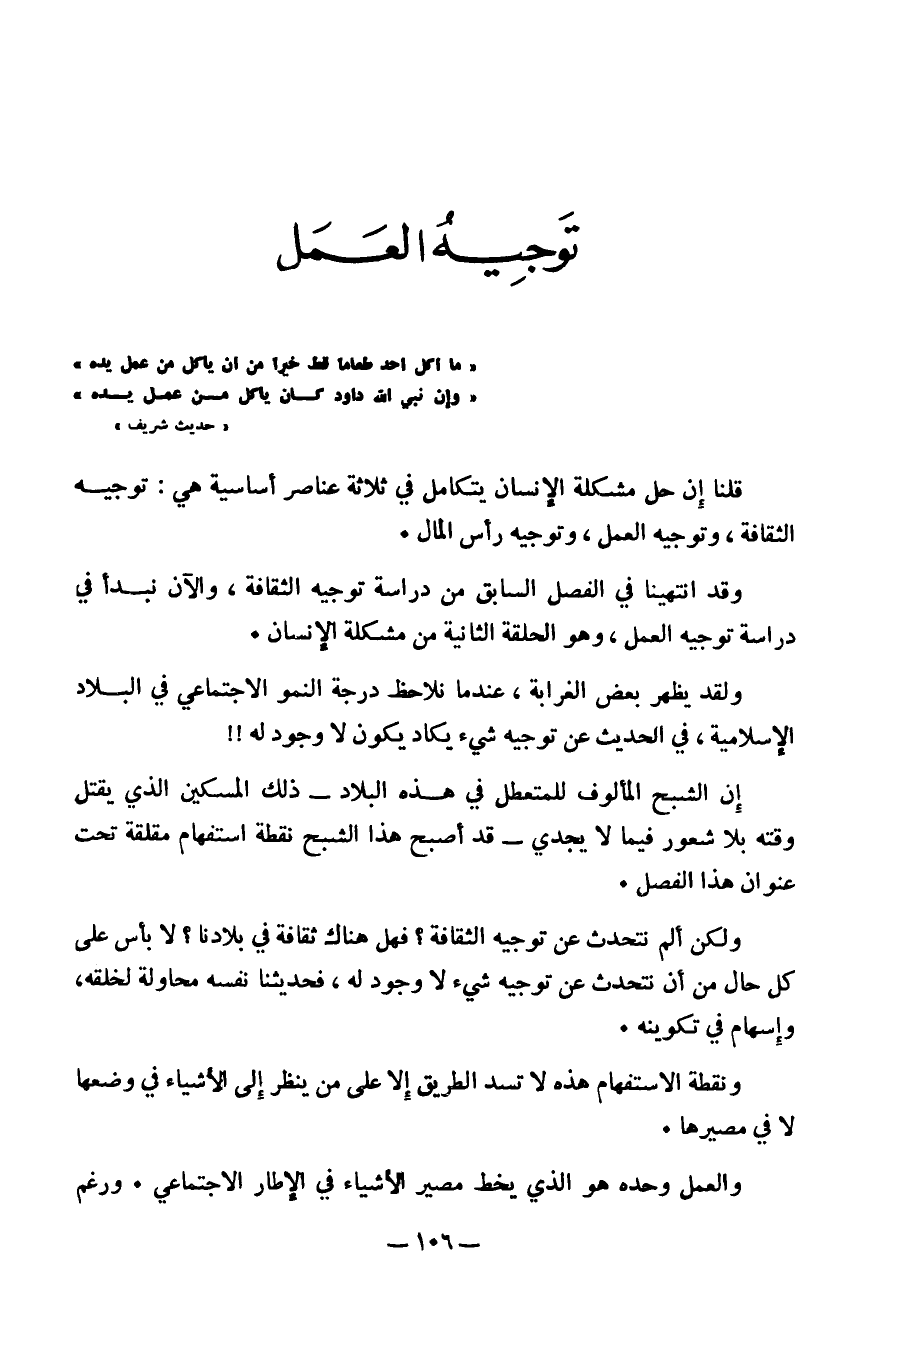 تَوجِيهُ العَمَل
« ما أكل أحد طعاماً قط خيراً من أن يأكل من عمل يده »
« وإن نبي الله داود كان يأكل من عمل يده »
« حديث شريف »
قلنا إن حل مشكلة الإنسان يتكامل في ثلاثة عناصر أساسية هي : توجيه
الثقافة ، وتوجيه العمل ، وتوجيه رأس المال .
وقد انتهينا في الفصل السابق من دراسة توجيه الثقافة ، والآن نبدأ في
دراسة توجيه العمل ، وهو الحلقة الثانية من مشكلة الإنسان .
ولقد يظهر بعض الغرابة ، عندما نلاحظ درجة النمو الاجتماعي في البلاد
الإسلامية ، في الحديث عن توجيه شيء يكاد يكون لا وجود له !!
إن الشبح المألوف للمتعطل في هذه البلاد – ذلك المسكين الذي يقتل
وقته بلا شعور فيما لا يجدي – قد أصبح هذا الشبح نقطة استفهام مقلقة تحت
عنوان هذا الفصل .
ولكن ألم نتحدث عن توجيه الثقافة ؟ فهل هناك ثقافة في بلادنا ؟ لا بأس على
كل حال من أن نتحدث عن توجيه شيء لا وجود له ، فحديثنا نفسه محاولة لخلقه،
وإسهام في تكوينه .
ونقطة الاستفهام هذه لا تسد الطريق إلا على من ينظر إلى الأشياء في وضعها
لا في مصيرها .
والعمل وحده هو الذي يخط مصير الأشياء في الإطار الاجتماعي . ورغم
– ١٠٦ –